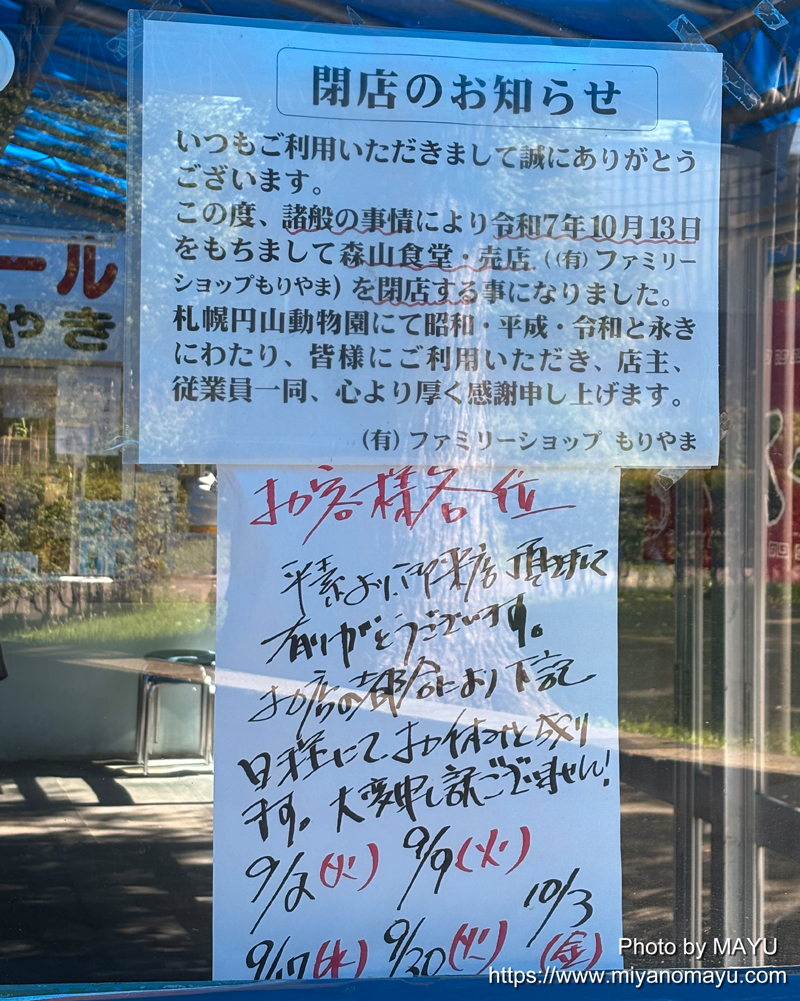 閉店のお知らせ
いつもご利用いただきまして誠にありがとう
ございます。
この度、諸般の事情により令和7年10月13日
をもちまして森山食堂・売店（(有）ファミリー
ショップもりやま）を閉店する事になりました。
札幌円山動物園にて昭和・平成・令和と永き
にわたり、皆様にご利用いただき、店主、
従業員一同、心より厚く感謝申し上げます。
(有)ファミリーショップ もりやま
お客様各位
平素より、御来店頂きまして
有りがとうございます。
お店の都合により下記
日程にて、お休みと成り
ます。大変申し訳ございません!
9/2(火) 9/9(火)
10/3
9/17(水) 9/30(火) (金)
ール
やき
Photo by MAYU
https://www.miyanomayu.com